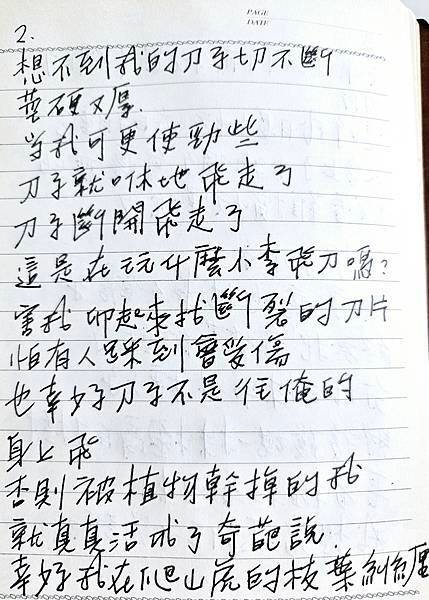 PAGE
DATE
2.
想不到我的刀子切不斷
莖硬又厚.
当我可更使勁些
刀子就咻地飛走了
刀子斷開飛走了
這是在玩什麼小李飛刀嗎?
害我卯起來找斷裂的刀片
怕有人踩到會受傷
也幸好刀子不是往俺的
身上飛
否則被植物幹掉的我
就真真活成了奇葩說
幸好我在爬山虎的枝葉糾纏